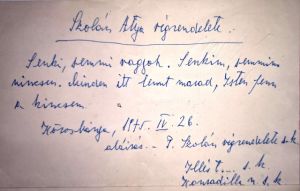 Skolán Atya végrendelete.
Senki, semmi vagyok. Senkim, semmim
nincsen. Minden itt lennt marad, Isten fenn
a kincsem.
Körösbánya, 1975. IV. 26.
aláírás. - P. Skolán végrendelete s.k.
Illés t... s. k.
n. s. k.